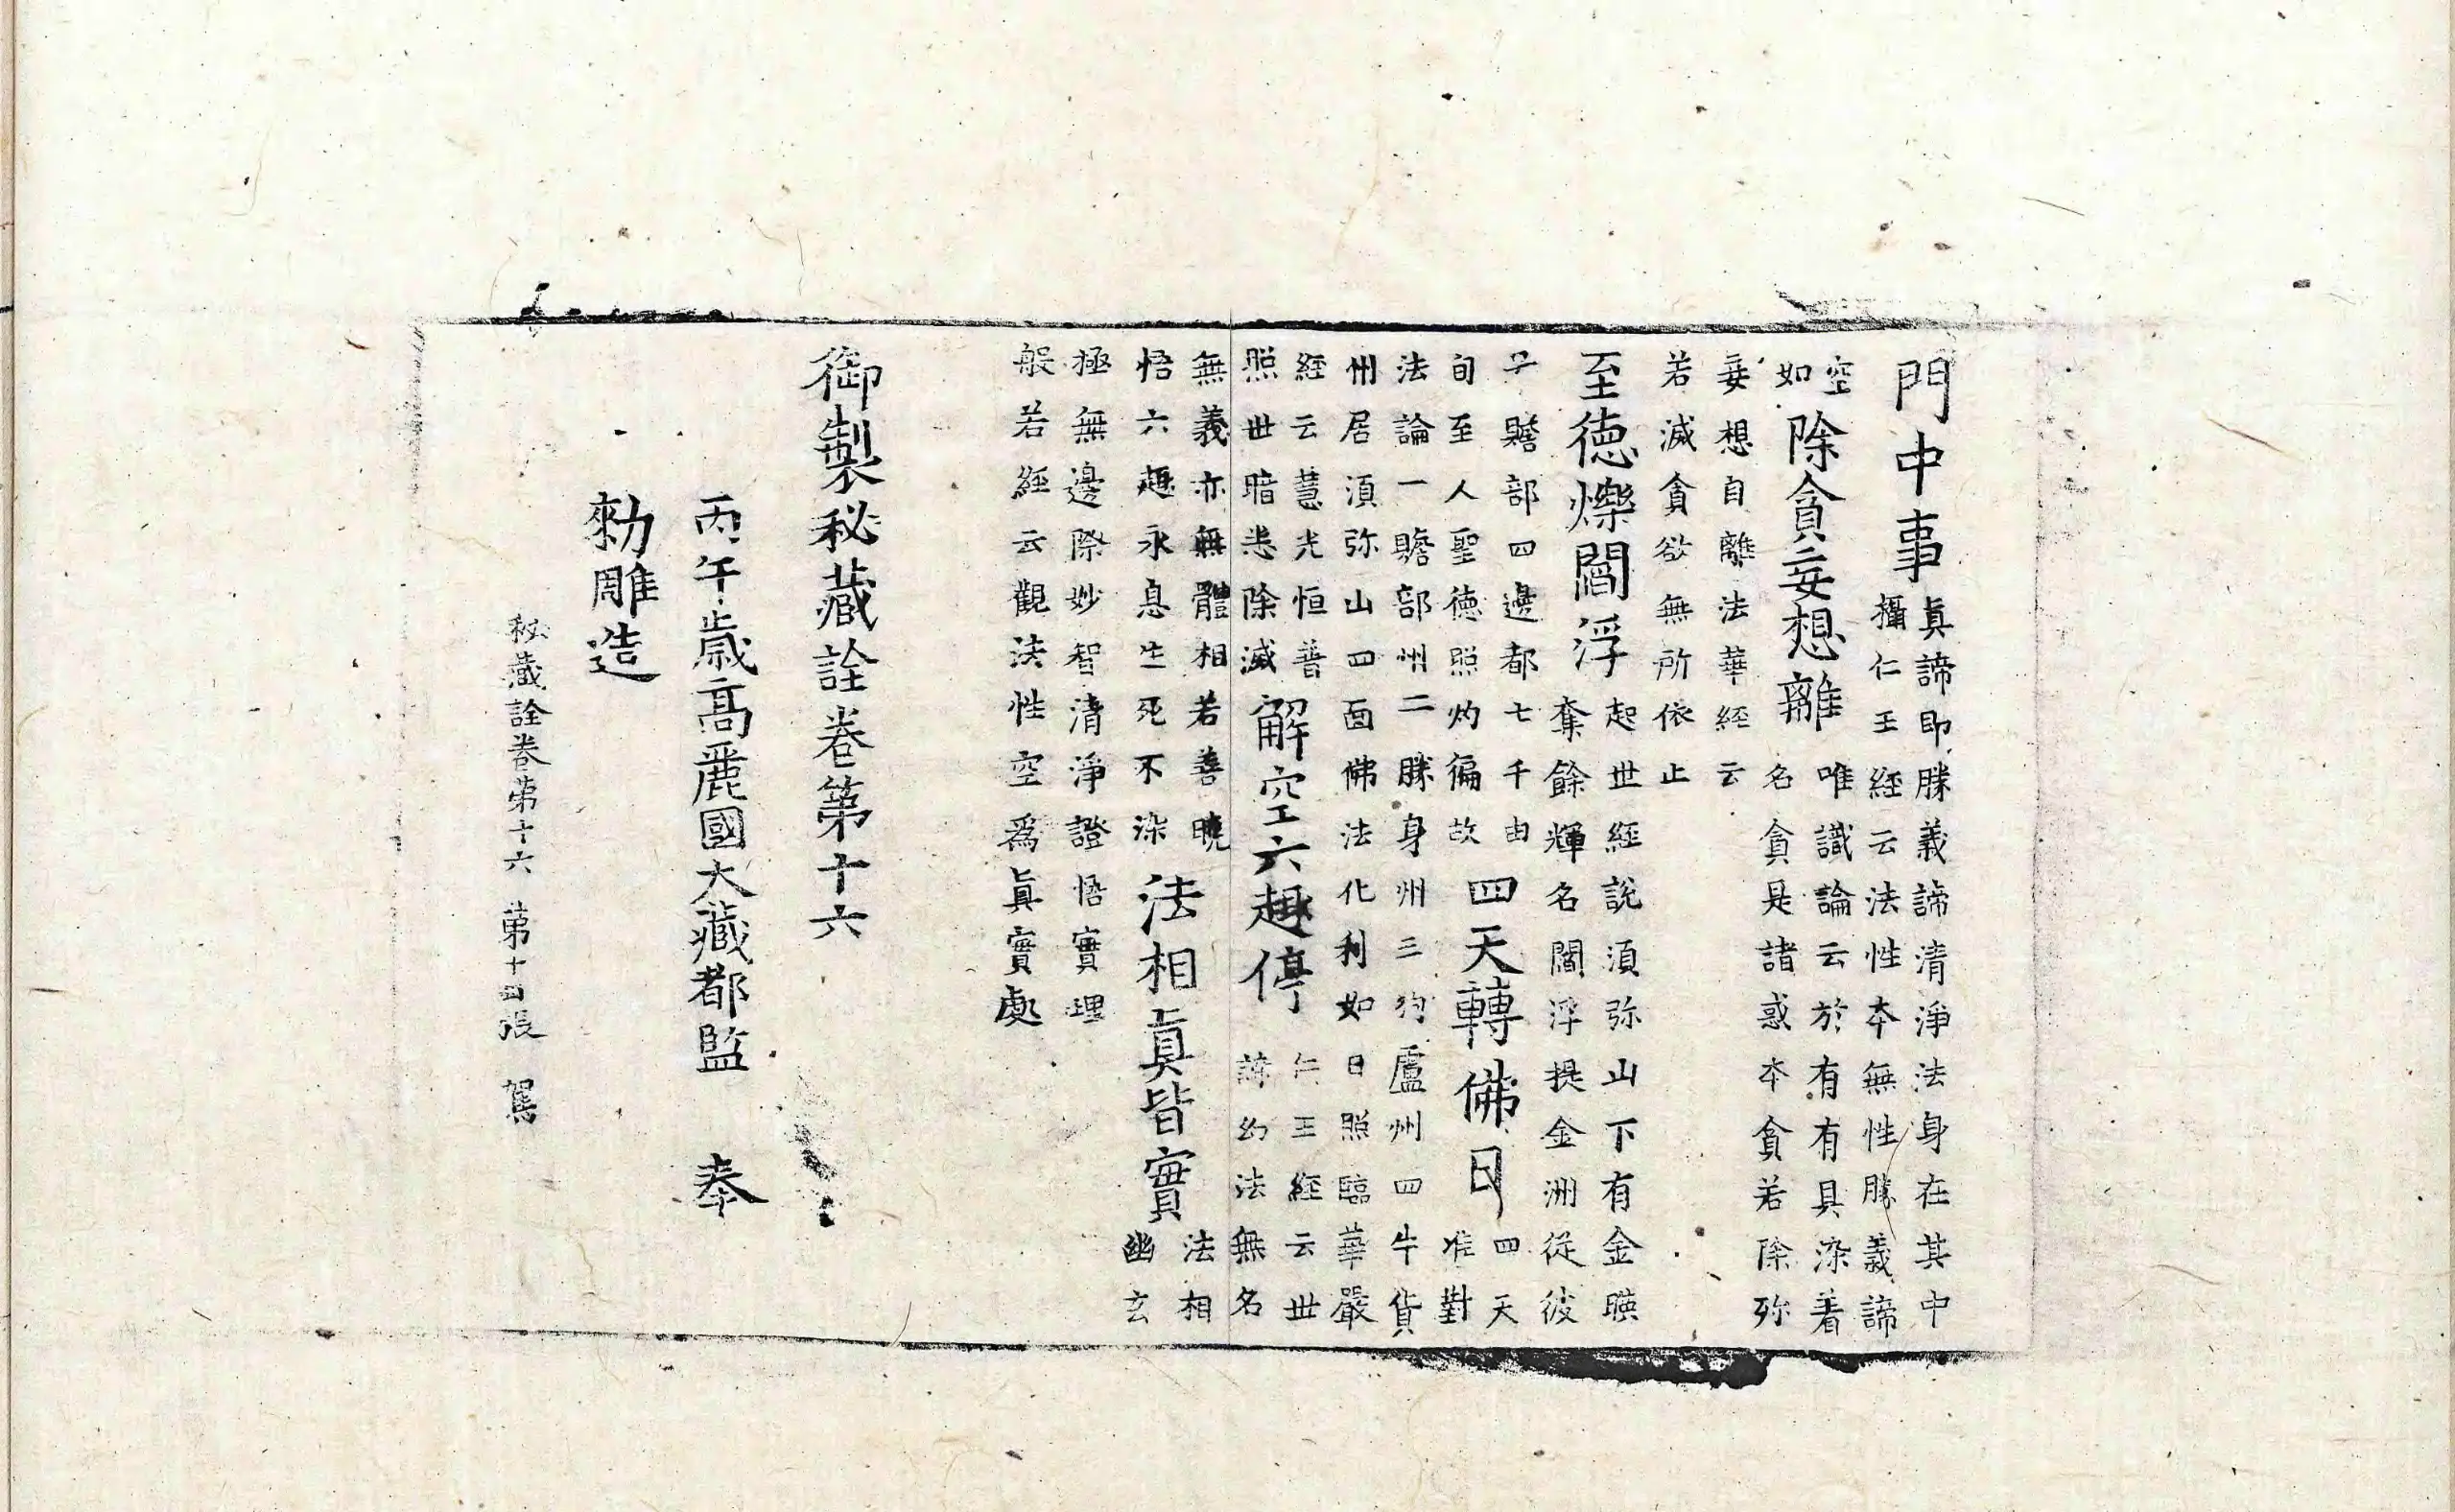 門中事眞諦即勝義諦清淨法身在其中攝仁王經云法性本無性勝義諦
空如除貪妄想離唯識論云於有有具染着名貪是諸惑本貪若除殄
妄想自離法華經云若滅貪欲無所依止
至德爍閻浮起世經說須弥山下有金暎奪餘輝名閻浮提金洲從彼
子贍部四邊都七千由旬至人聖德照灼徧故四天轉佛日四天准對
法論一贍部州二勝身州三狗盧州四牛貨州居須弥山四面佛法化利如日照臨華嚴
經云慧光恒普照世暗悉除滅解空六趣停仁王經云世諦幻法無名
無義亦無體相若善曉悟六趣永息生死不染法相眞皆實法相幽玄
極無邊際妙智清淨證悟實理般若經云觀法性空爲眞實處
御製秘藏詮卷第十六
丙午歲高麗國大藏都監奉
勑雕造
秘藏詮卷第十六 第十四張 駕